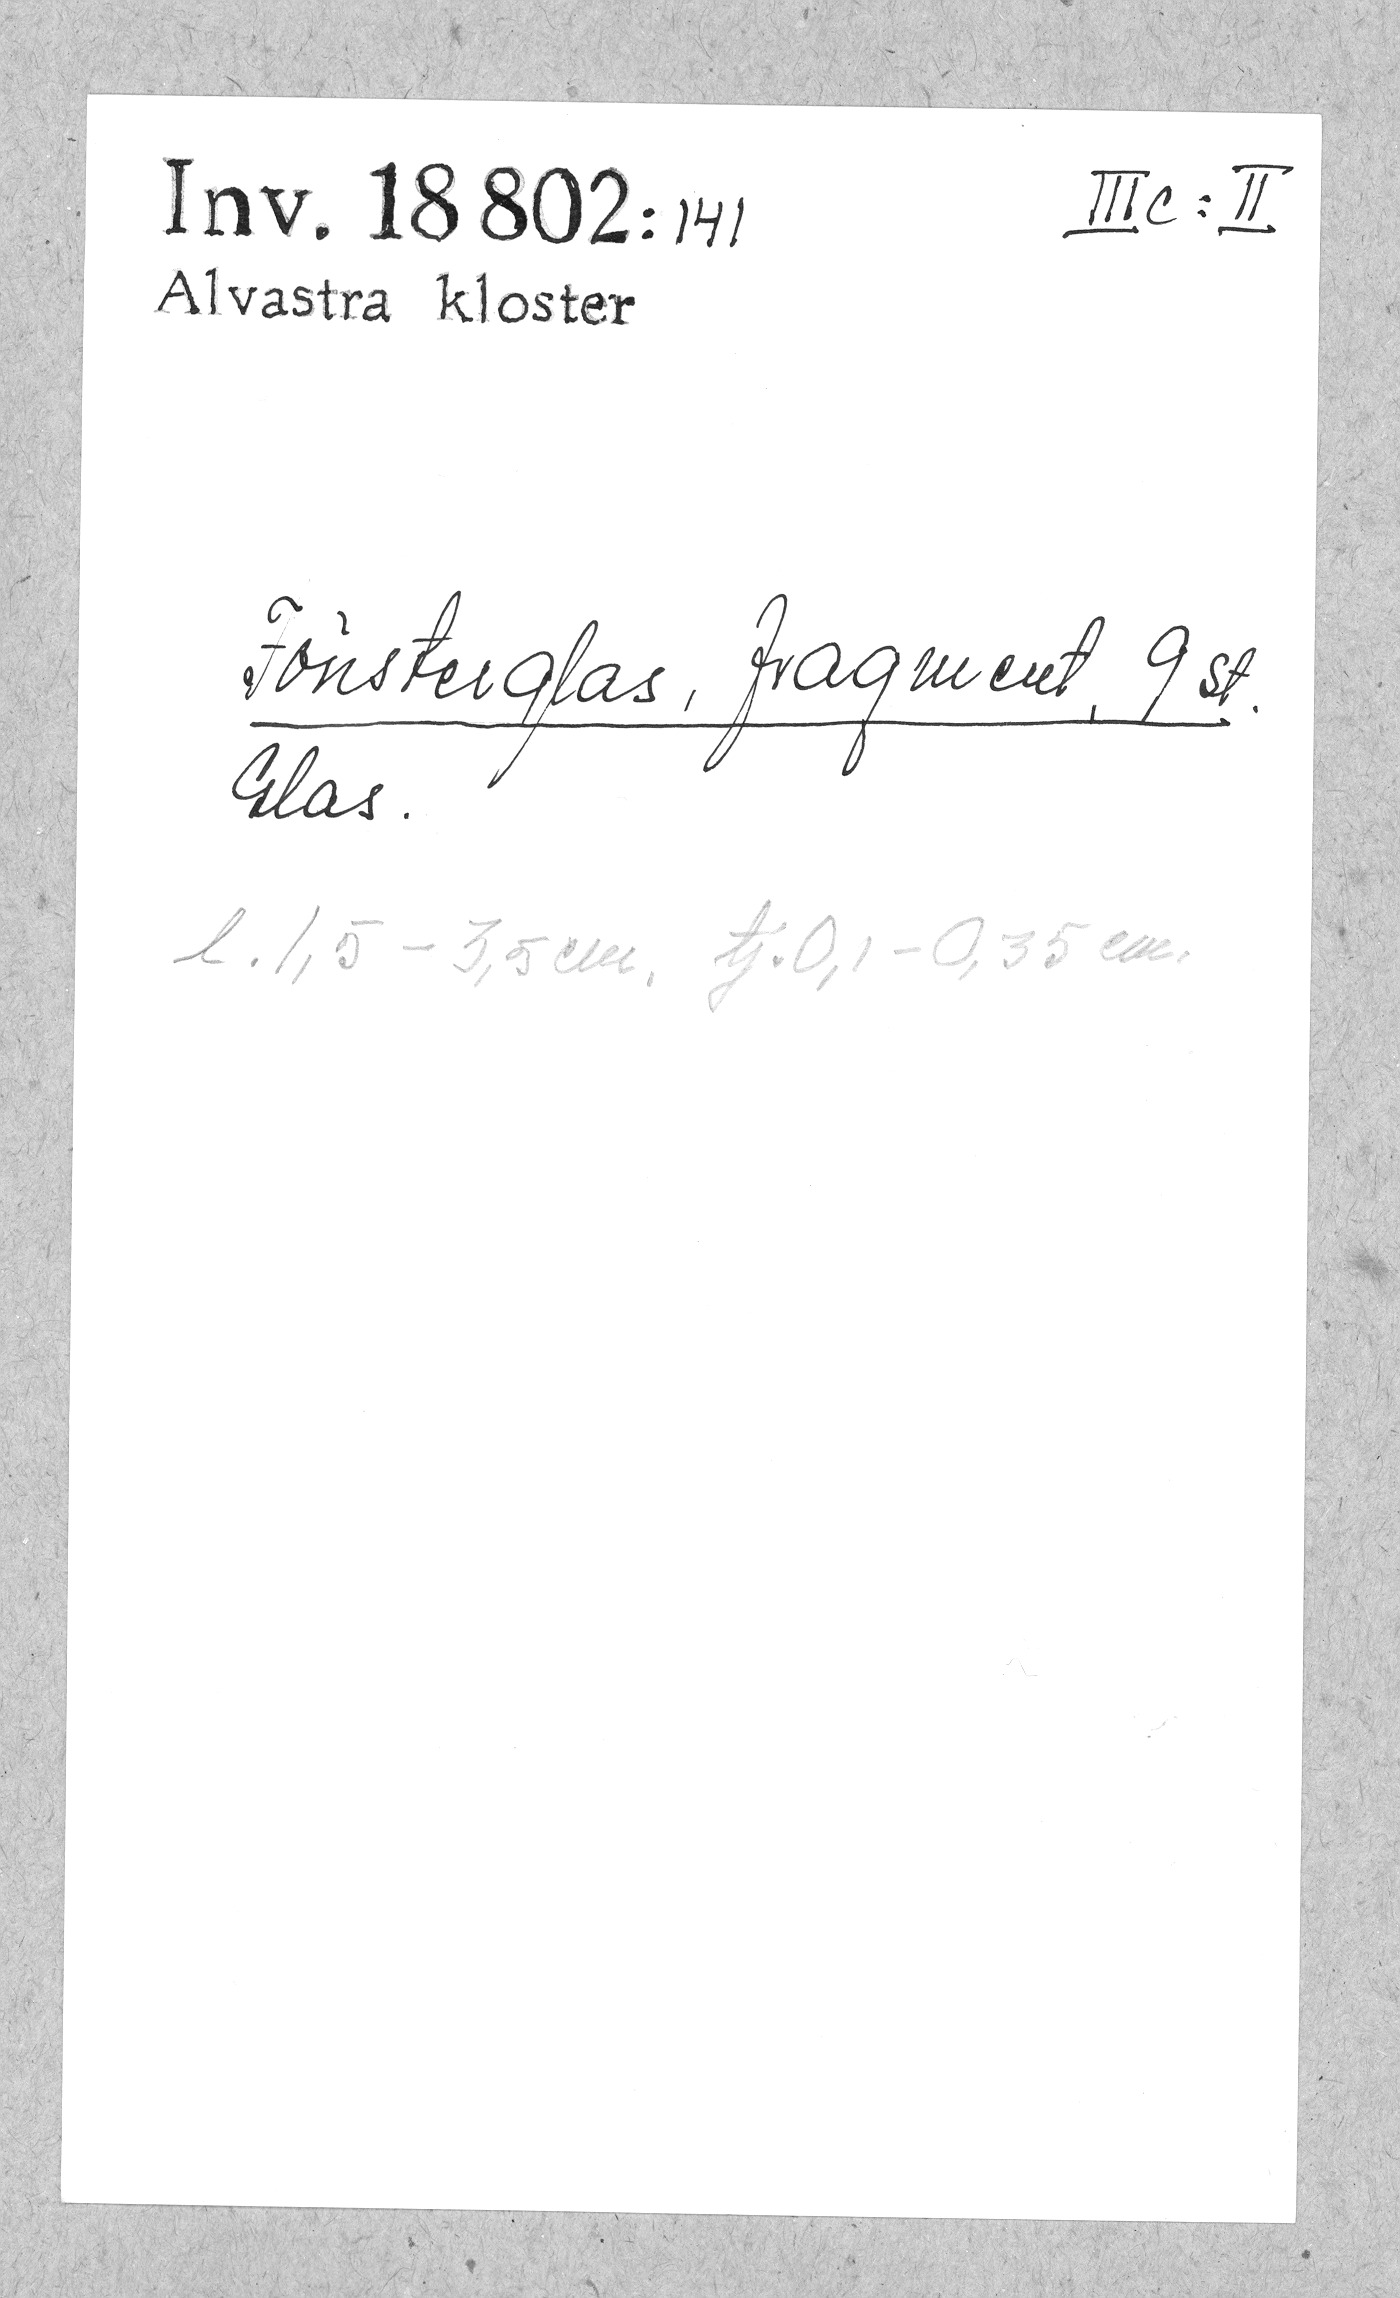 Inv. 18 802:141 IIIc:II
Alvastra kloster
Fönsterglas, fragment, 9 st.
Glas.
l. 1,5 - 3,5 cm. tj. 0,1 - 0,35 cm.